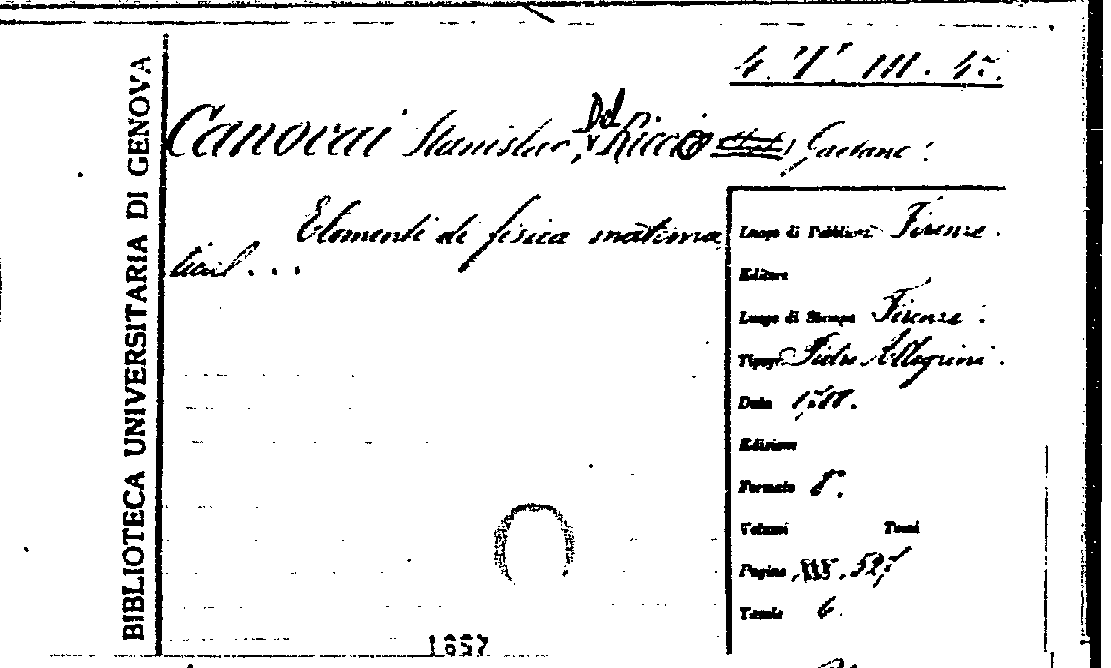 BIBLIOTECA UNIVERSITARIA DI GENOVA
4. III. 45.
Canovai Stanislao, Del Riccio Gaetano.
Elementi di fisica matema
Luogo di Pubblicaz. Firenze.
Editore
Luogo di Stampa Firenze.
Tipogr. Pietro Allegrini.
Data
Edizione
Formato 8°.
Volumi Tomi
Pagine 527
Tavole 6.
1857